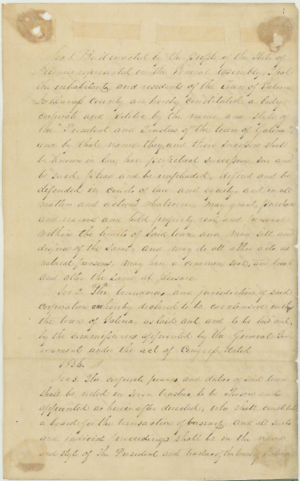 Sec 1. Be it enacted by the people of the State of
Illinois represented in the General Assembly, That
the inhabitants and residents of the town of Galena
County are hereby constituted a body
corporate and politic by the name and style of
the President and Trustees of the town of Galena
and by that name they and their successors shall
be known in law, have perpetual succession, sue and
be sued, plead and be impleaded, defend and be
defended in courts of law and equity and in all
matters and actions whatsoever, may grant, purchase
and receive and hold property real and personal
within the limits of said town and may sell and
dispose of the same, and may do all other acts as
natural persons, may have a common seal, and break
and alter the same at pleasure.
Sec 2. The boundaries and jurisdiction of said
corporation is hereby declared to be coextensive with
the town of Galena, as laid out and to be laid out,
by the commissioners appointed by the General Gov-
ernment under the act of Congress dated
1836.
Sec 3. The corporate powers and duties of said town
shall be vested in seven trustees to be chosen and
appointed as hereinafter directed, who shall constitute
a board for the transaction of business, and all suits
and judicial proceedings shall be in the name
and style of The President and trustees of the town of Galena